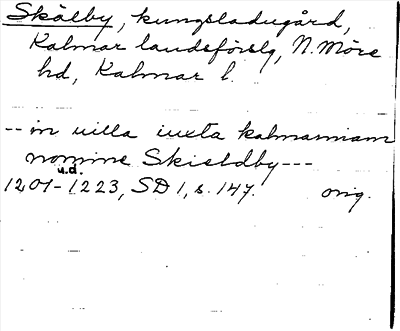 Skälby, kungsladugård,
Kalmar landsförslg, N. Möre
hd, Kalmar l.
-- in uilla iuxta kalmarniam
nomine Skieldby ---
u.d.
1201-1223, SD 1, s. 147. orig.